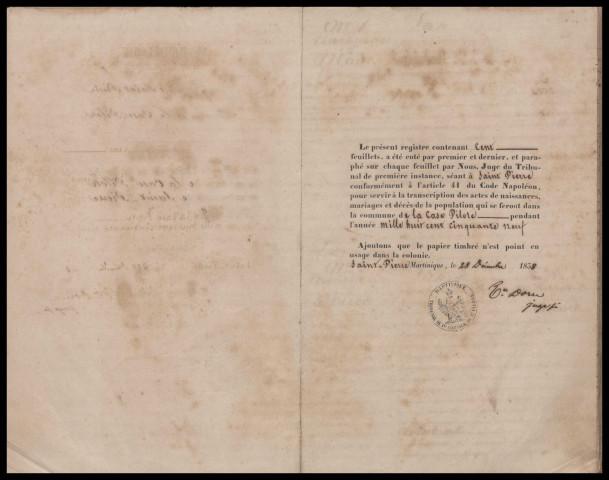 Le présent registre contenant Cent
feuillets, a été coté par premier et dernier, et para-
phé sur chaque feuillet par Nous, Juge du Tribu-
nal de première instance, séant à Saint Pierre
conformément à l'article 41 du Code Napoléon,
pour servir à la transcription des actes de naissances,
mariages et décès de la population qui se feront dans
la commune de la Case Pilote pendant
l'année mille huit cent cinquante neuf
Ajoutons que le papier timbré n'est point en
usage dans la colonie.
Saint-Pierre Martinique, le 28 Décembre 1858